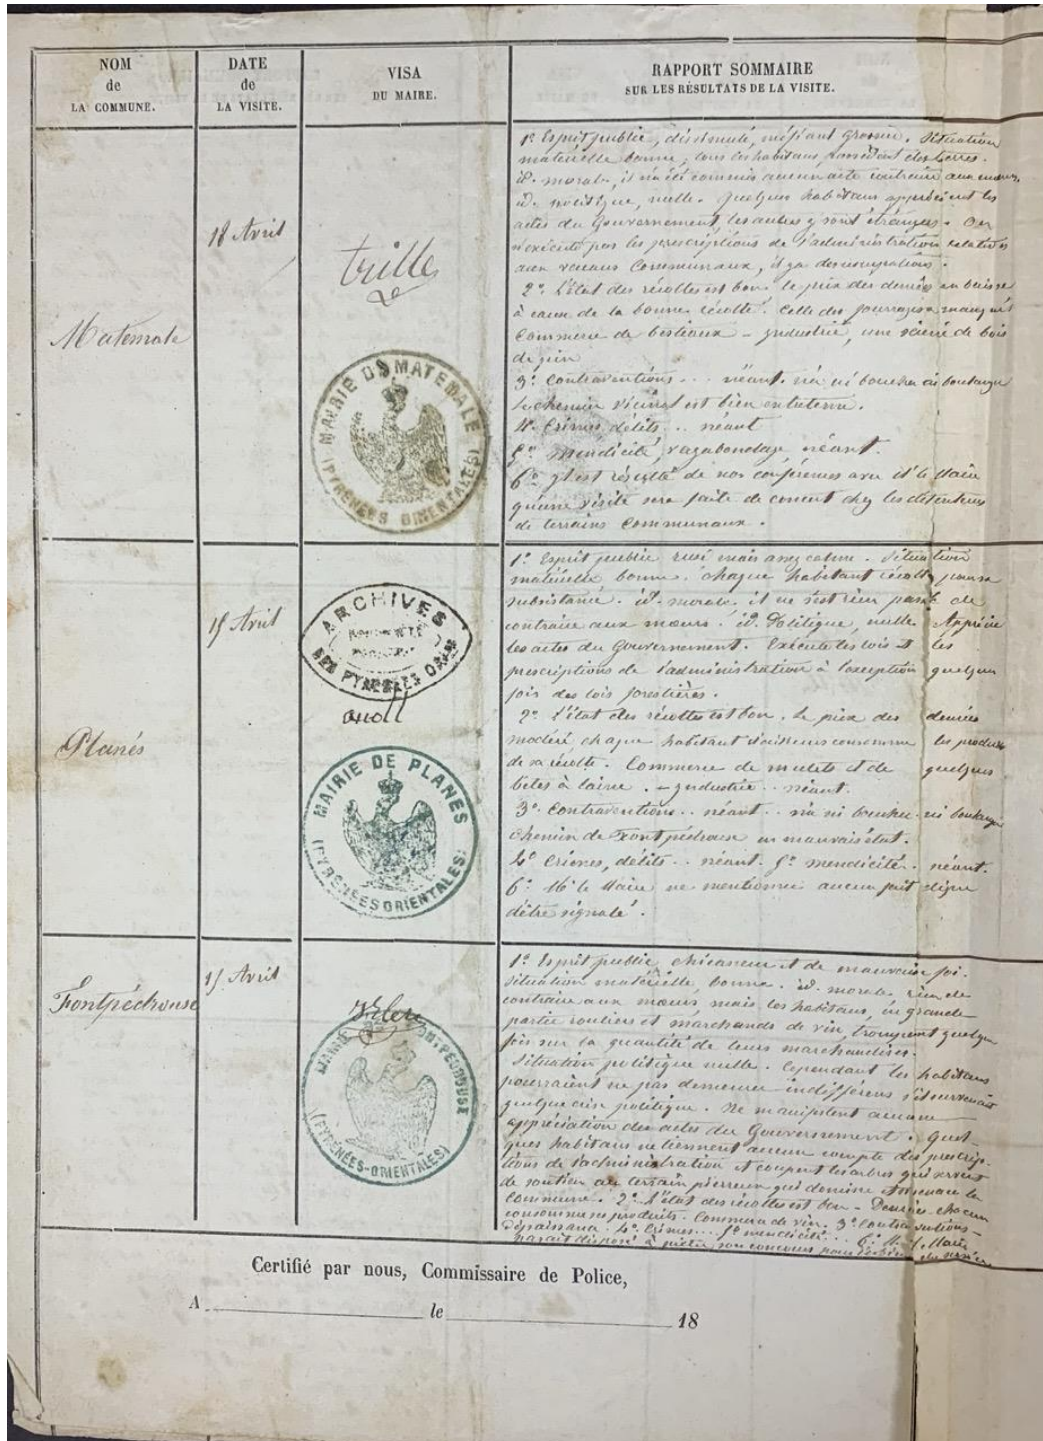 NOM
de
LA COMMUNE.
DATE
de
LA VISITE.
VISA
DU MAIRE.
RAPPORT SOMMAIRE
SUR LES RÉSULTATS DE LA VISITE.
Matemale
18 Avril
trilles
MAIRIE DE MATEMALE
(PYRÉNÉES ORIENTALES)
1º Esprit public, dissimulé, méfiant grossier. Situation
matérielle bonne, tous les habitans possédant des terres.
id. morale, il n'a été commis aucun acte contraire aux mœurs.
id. politique, nulle. Quelques habitans apprécient les
actes du Gouvernement, les autres y sont étrangers. On
n'exécute pas les prescriptions de l'administration relatives
aux vacans Communaux, il y a des usurpations.
2º. L'état des récoltes est bon. le prix des denrées en baisse
à cause de la bonne récolte. Celle des fourrages a manqué
Commerce de bestiaux - industrie, une scierie de bois
de pin
3º. Contraventions... néant. n'a ni boucher ni boulanger
Le chemin vicinal est bien entretenu.
4º. Crimes, délits... néant
5º. Mendicité, vagabondage, néant.
6º. Il est résulté de nos conférences avec Mr le Maire
qu'une visite sera faite de concert chez les détenteurs
de terrains Communaux.
Planés
15 Avril
ARCHIVES
DES PYRÉNÉES ORles
MAIRIE DE PLANES
(PYRÉNÉES ORIENTALES)
1º. Esprit public rusé mais assez calme. Situation
matérielle, bonne. chaque habitant récolte pour sa
subsistance. id. morale, il ne s'est rien passé de
contraire aux mœurs. id. Politique, nulle. Apprécie
les actes du Gouvernement. Exécute les lois et les
prescriptions de l'administration à l'exception quelque
fois des lois forestières.
2º. L'état des récoltes est bon. Le prix des denrées
modéré chaque habitant d'ailleurs consomme les produits
de sa récolte. Commerce de mulets et de quelques
bêtes à laine. - industrie.. néant.
3º. Contraventions.. néant.. n'a ni boucher ni boulanger
Chemin de Fontpédrouse en mauvais état.
4º Crimes, délits.. néant. 5º mendicité. néant.
6º. Mr le Maire ne mentionne aucun fait digne
d'être signalé.
Fontpédrouse
15 Avril
MAIRIE DE FONTPEDROUSE
(PYRÉNÉES-ORIENTALES)
1º. Esprit public, chicaneur et de mauvaise foi.
Situation matérielle, bonne. id. morale, rien de
contraire aux mœurs mais les habitans, en grande
partie rouliers et marchands de vin, trompent quelque
fois sur la quantité de leurs marchandises.
Situation politique nulle. Cependant les habitans
pourraient ne pas demeurer indifférens s'il survenait
quelque crise politique. Ne manifestent aucune
appréciation des actes du Gouvernement. Quel-
ques habitans ne tiennent aucun compte des prescrip-
tions de l'administration et coupent les arbres qui servent
de soutien au terrain pierreux qui domine et menace la
Commune. 2º. L'état des récoltes est bon - Denrées chacun
consomme ses produits. Commerce de vin. 3º Contraventions
4º. Crimes... 5º mendicité... 6º. M. le Maire
parait disposé à prêter son concours pour le bien du service
Certifié par nous, Commissaire de Police,
A le 18